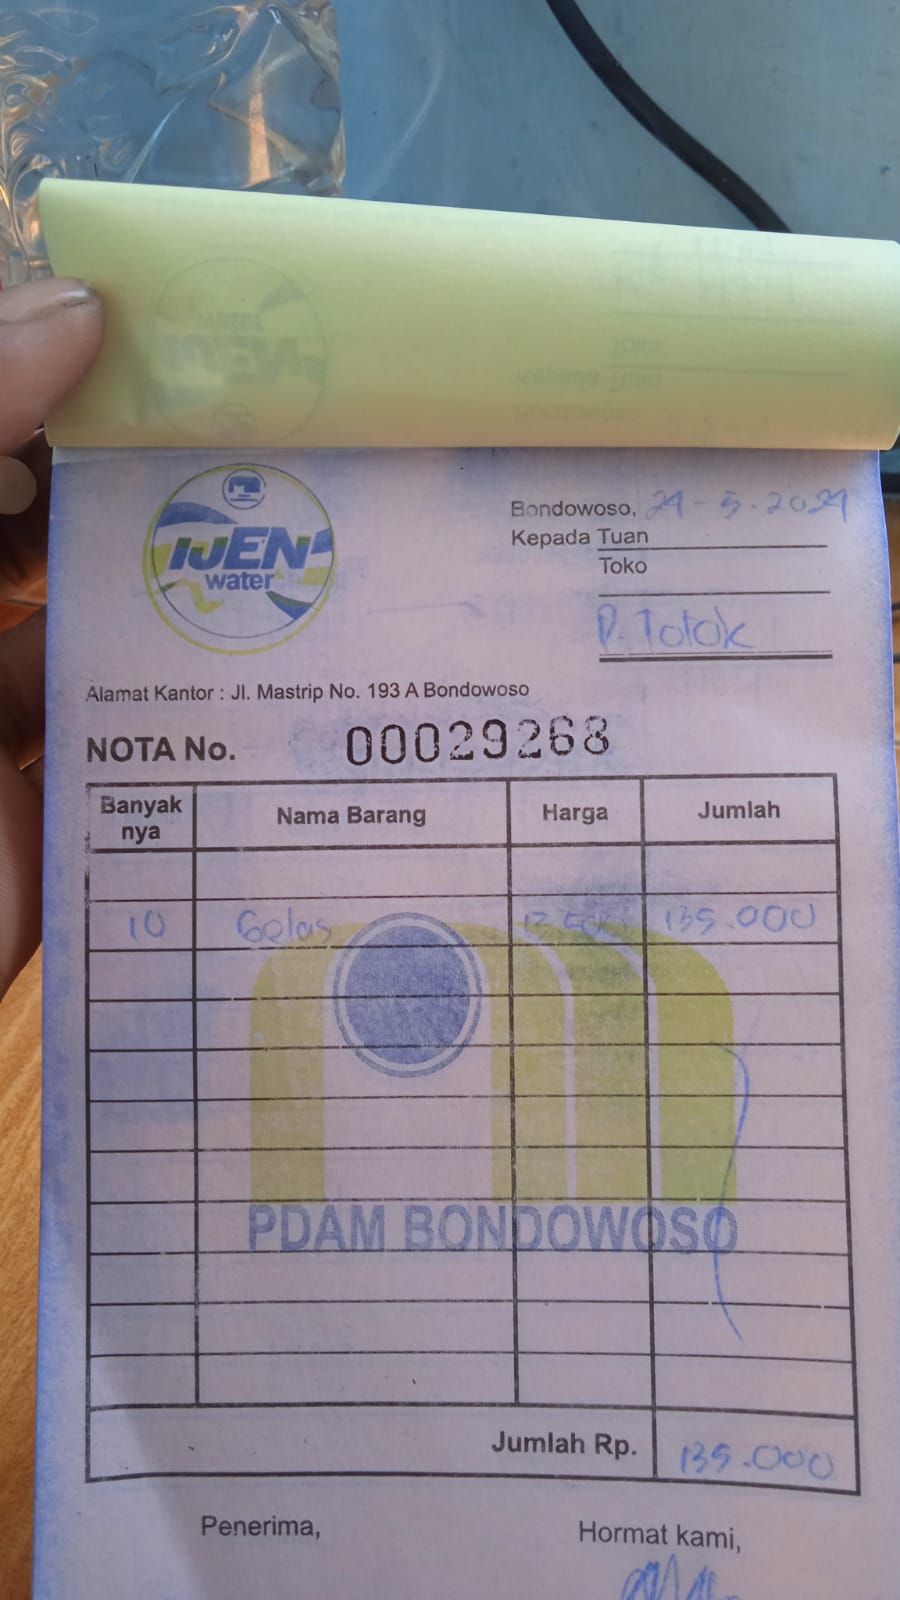 IJEN
water
Bondowoso, 29-5-2029
Kepada Tuan
Toko
P. Totok
Alamat Kantor : Jl. Mastrip No. 193 A Bondowoso
NOTA No. 00029268
Banyak nya Nama Barang Harga Jumlah
10 Gelas 13.500 135.000
PDAM BONDOWOSO
Jumlah Rp. 135.000
Penerima, Hormat kami,